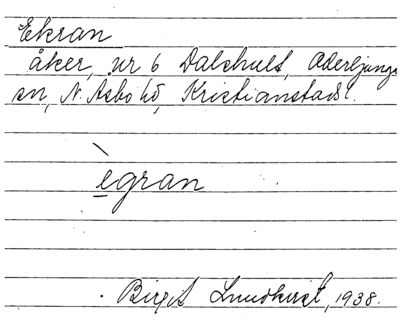 Ekran
åker, nr 6 Dalshult, Oderljunga
sn, N. Åsbo hd, Kristianstads l.
ègran
Birgit Lundkvist, 1938.